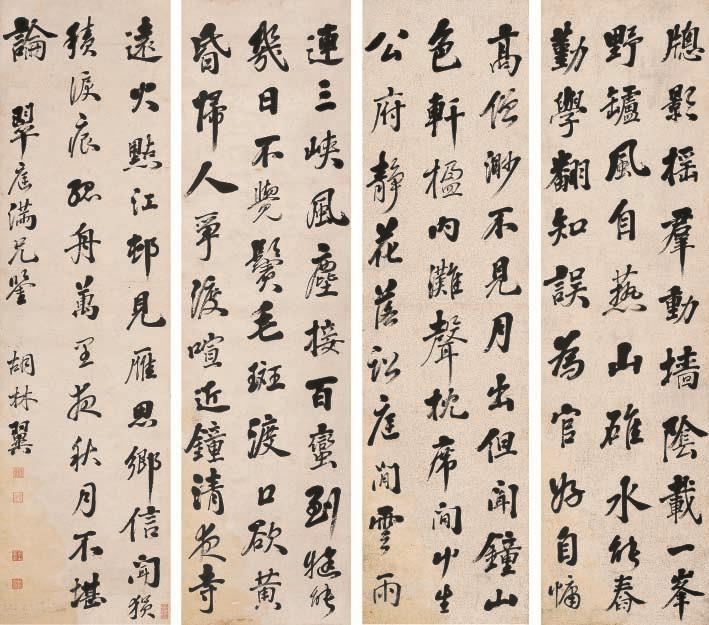 牕影摇羣動墻陰載一峯
野鑪風自爇山碓水能舂
勤學翻知誤為官好自慵
高僧渺不見月出但聞鐘山
色軒楹内灘聲枕席間艸生
公府靜花落訟庭閒雲雨
連三峽風塵接百蠻到徠能
幾日不覺鬢毛斑渡口欲黄
昏歸人爭渡喧近鐘清夜寺
遠火點江邨見雁思鄉信聞猿
積淚痕孤舟萬里夜秋月不堪
論 翠崖滿兄鑒 胡林翼